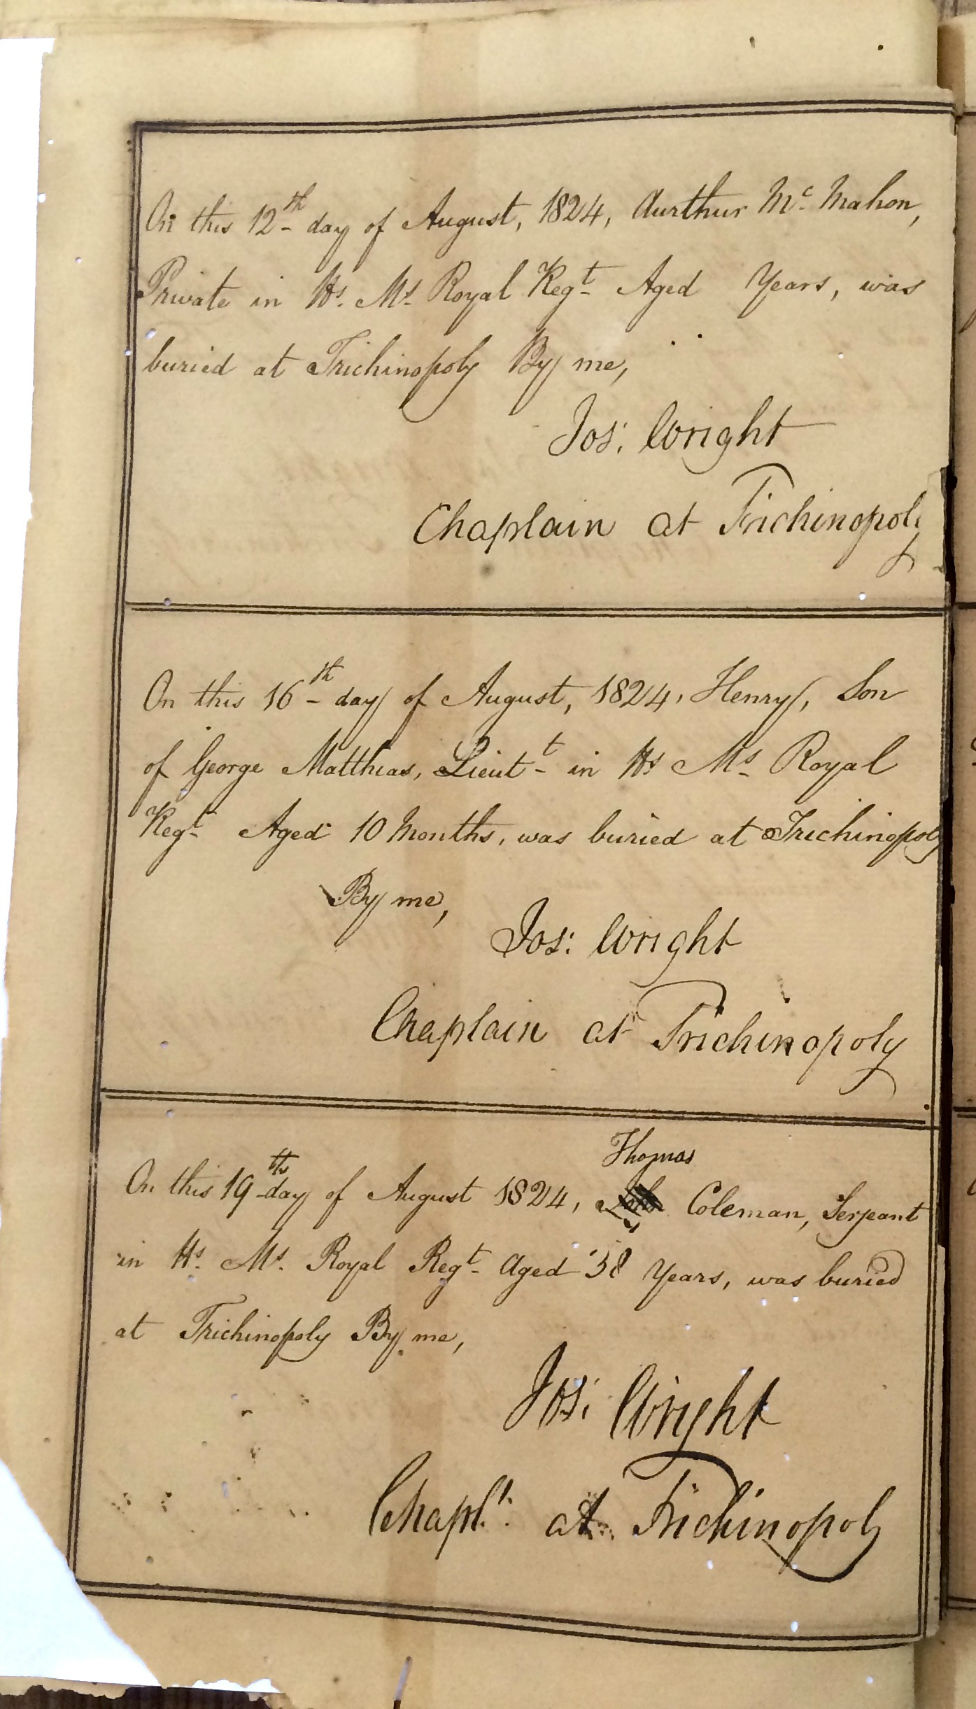 On this 12th day of August, 1824, Aurthur Mc Mahon,
Private in Hs. Ms. Royal Regt. Aged Years, was
buried at Trichinopoly By me,
Jos: Wright
Chaplain at Trichinopoly
On this 16th day of August, 1824, Henry, Son
of George Matthias, Lieutt. in Hs Ms. Royal
Regt. Aged 10 Months, was buried at Trichinopoly
By me,
Jos: Wright
Chaplain at Trichinopoly
Thomas
On this 19th day of August 1824, Coleman, Serjeant
in Hs. Ms. Royal Regt. Aged 38 Years, was buried
at Trichinopoly By me,
Jos: Wright
Chapln: at Trichinopoly